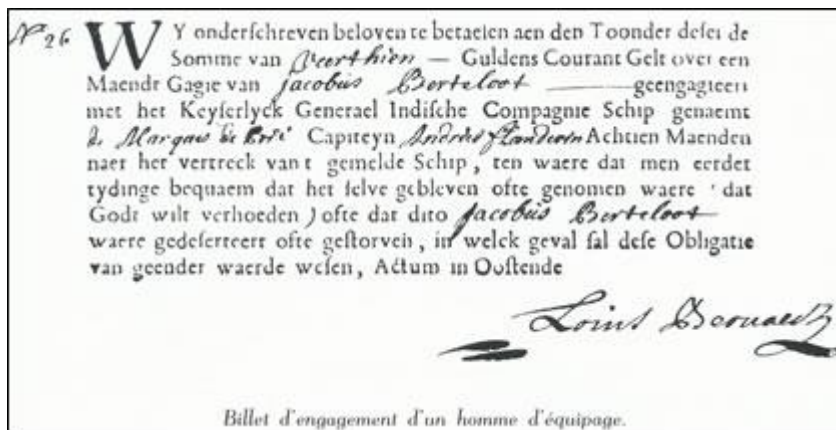 N° 26 WY onderſchreven beloven te betaelen aen den Toonder deſer de
Somme van Veerthien — Guldens Courant Gelt over een
Maendt Gagie van Jacobus Berteloot —— geengagieert
met het Keyſerlyck Generael Indiſche Compagnie Schip genaemt
de Marquis de Prié Capiteyn Andries Flanderin Achtien Maenden
naer het vertreck van t gemelde Schip, ten waere dat men eerder
tydinge bequaem dat het ſelve gebleven ofte genomen waere (dat
Godt wilt verhoeden) ofte dat dito Jacobus Berteloot
waere gedeſerteert ofte geſtorven, in welck geval ſal deſe Obligatie
van geender waerde weſen, Actum in Ooſtende
Billet d'engagement d'un homme d'équipage.